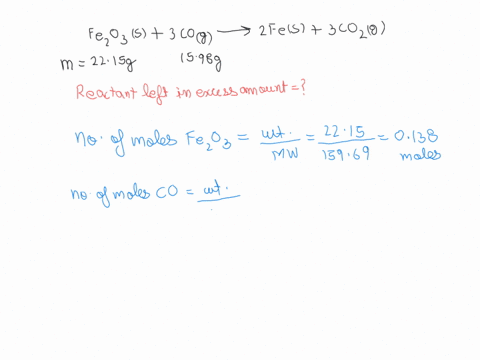 Fe₂O₃(s) + 3CO(g) → 2Fe(s) + 3CO₂(g)
m = 22.15g 15.98g
Reactant left in excess amount = ?
no. of moles Fe₂O₃ = wt. / MW = 22.15 / 159.69 = 0.138 moles
no. of moles CO = wt.